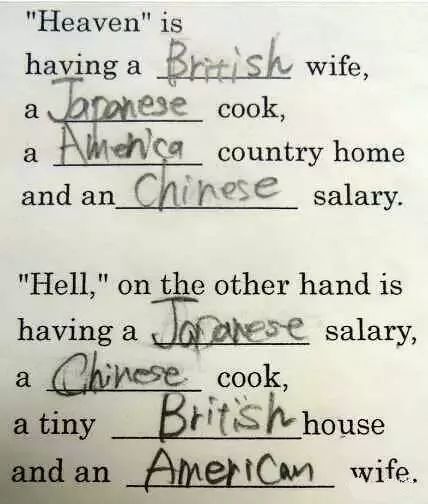 "Heaven" is
having a British wife,
a Japanese cook,
a America country home
and an Chinese salary.
"Hell," on the other hand is
having a Japanese salary,
a Chinese cook,
a tiny British house
and an American wife.